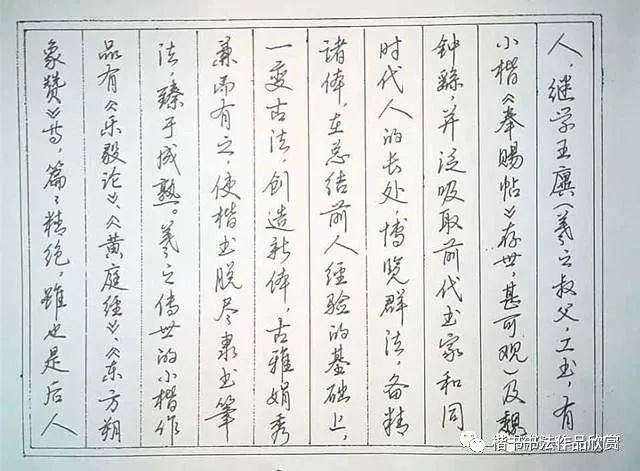 人，继学王廙(羲之叔父，工书，有
小楷《奉赐帖》存世，甚可观)及魏
钟繇，并泛吸取前代书家和同
时代人的长处，博览群法，备精
诸体，在总结前人经验的基础上，
一变古法，创造新体，古雅娟秀
兼而有之，使楷书脱尽隶书笔
法，臻于成熟。羲之传世的小楷作
品有《乐毅论》、《黄庭经》、《东方朔
象赞》等，篇々精绝，虽也是后人
楷书书法作品欣赏